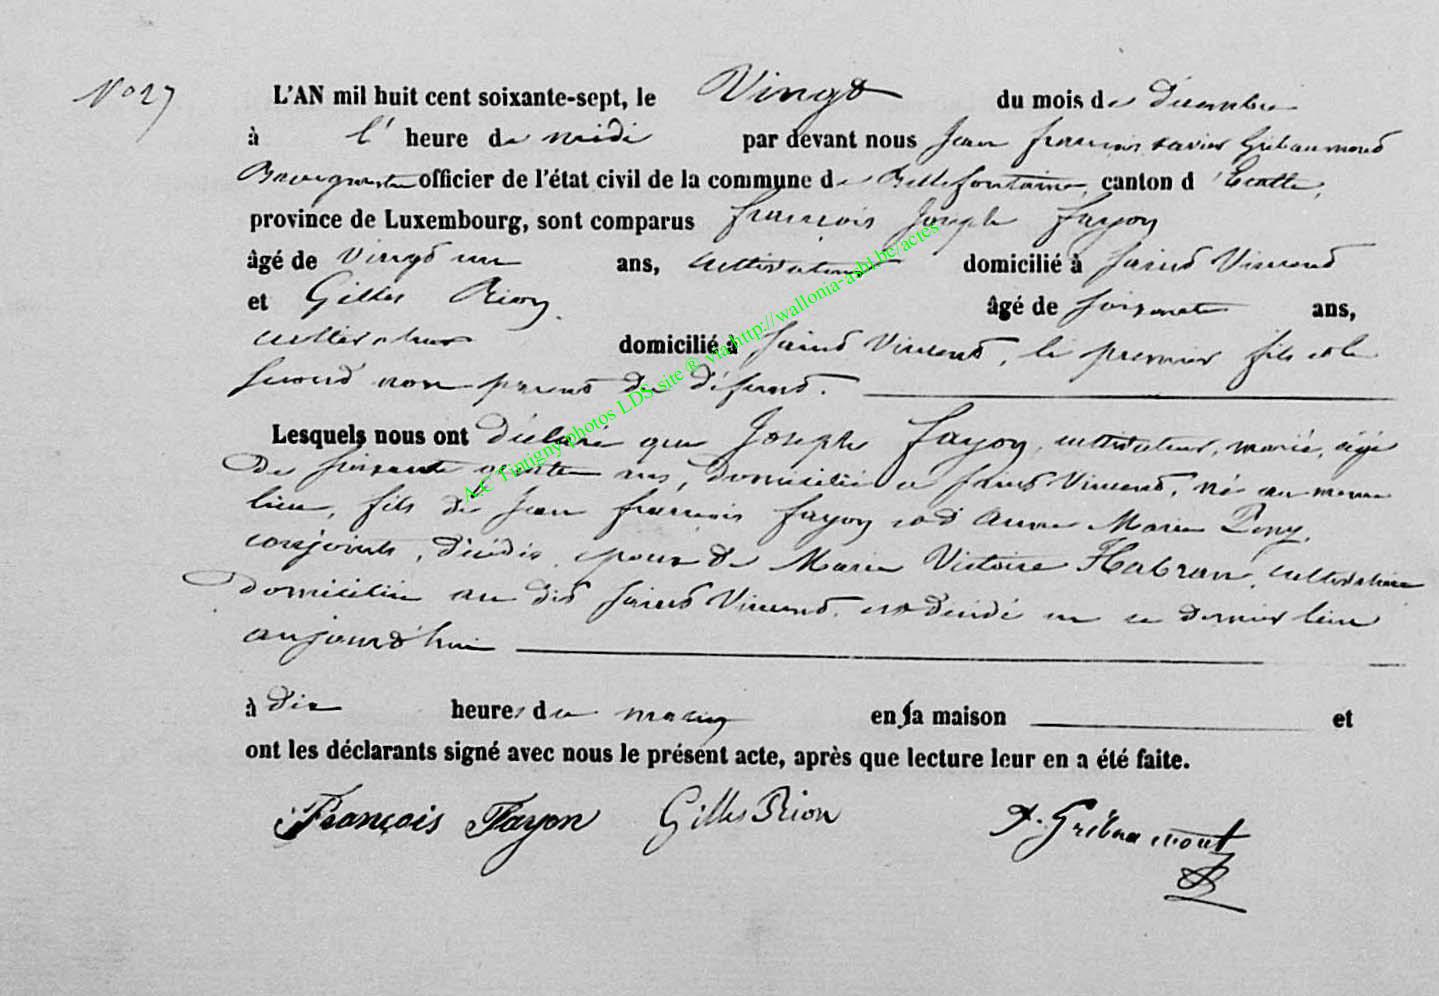 N° 27
L'AN mil huit cent soixante-sept, le Vingt du mois de décembre
à l' heure de midi par devant nous Jean françois xavier Gribaumont
Bourgmestre officier de l'état civil de la commune de Bellefontaine, canton d'Etalle,
province de Luxembourg, sont comparus françois Joseph fayon
âgé de vingt un ans, cultivateur domicilié à Saint Vincent
et Gilles Rion, âgé de soixante ans,
cultivateur domicilié à Saint Vincent, le premier fils et le
second non parent du défunt.
Lesquels nous ont déclaré que Joseph fayon, cultivateur, marié, âgé
de soixante ans, domicilié a Saint Vincent, né au meme
lieu, fils de Jean françois fayon et d'Anne Marie Pony,
conjoints, décédés, epoux de Marie Victoire Habran, cultivatrice
domiciliée au dit Saint Vincent, est décédé en ce dernier lieu
aujourd'hui
à dix heures du matin en sa maison et
ont les déclarants signé avec nous le présent acte, après que lecture leur en a été faite.
François Fayon Gilles Rion X. Gribaumont
A.C Tintigny photos LDS site ® via http://wallonia-asbl.be/actes